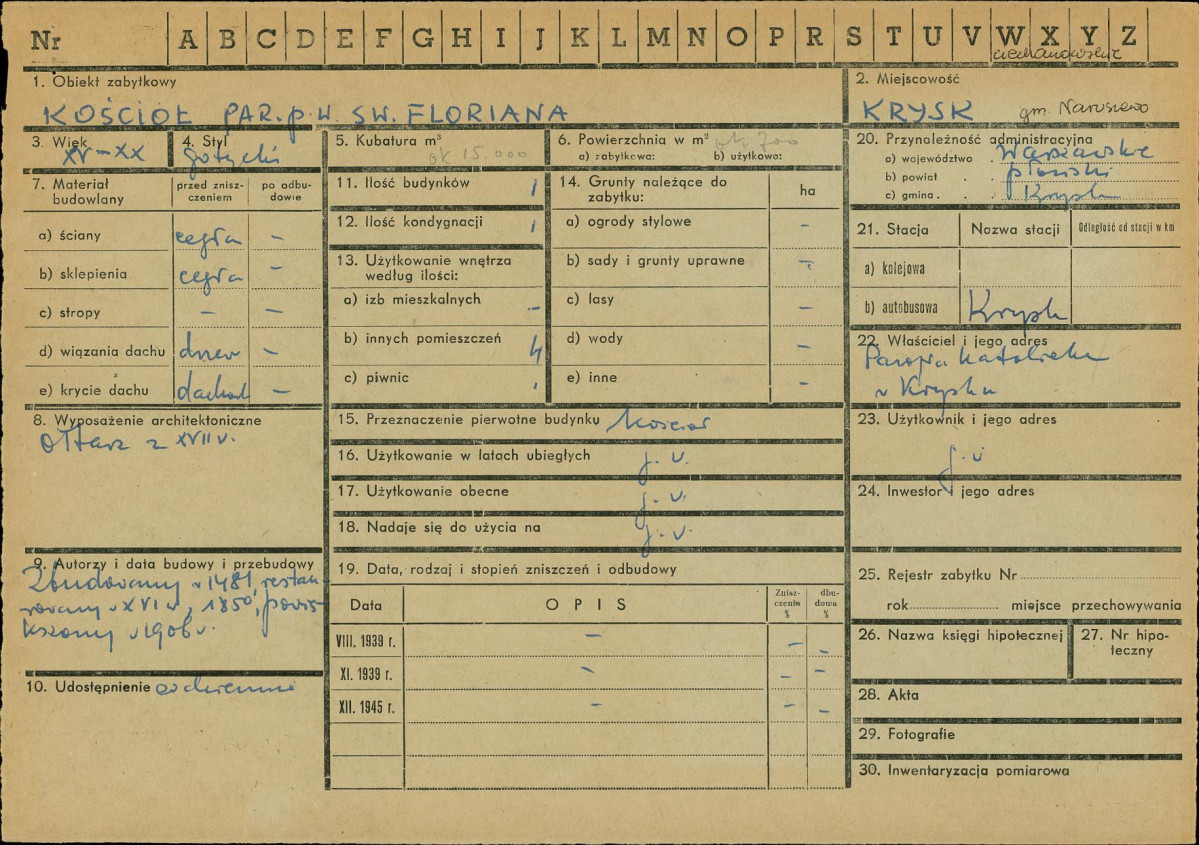 Nr A B C D E F G H I J K L M N O P R S T U V W X Y Z
ciechanowskie
1. Obiekt zabytkowy
KOŚCIÓŁ PAR. p.w. ŚW. FLORIANA
2. Miejscowość
KRYSK gm. Naruszewo
3. Wiek
XV-XX
4. Styl
gotycki
5. Kubatura m³
ok 15.000
6. Powierzchnia w m² ok. 700
a) zabytkowa: b) użytkowa:
7. Materiał budowlany
przed zniszczeniem
po odbudowie
a) ściany cegła –
b) sklepienia cegła –
c) stropy – –
d) wiązania dachu drzew –
e) krycie dachu dachów –
8. Wyposażenie architektoniczne
ołtarz z XVII w.
9. Autorzy i data budowy i przebudowy
Zbudowany w 1481, restau
rowany w XVI w, 1850, powię
kszony w 1906 w.
10. Udostępnienie codziennie
11. Ilość budynków 1
12. Ilość kondygnacji 1
13. Użytkowanie wnętrza
według ilości:
a) izb mieszkalnych –
b) innych pomieszczeń 4
c) piwnic
14. Grunty należące do
zabytku: ha
a) ogrody stylowe –
b) sady i grunty uprawne –
c) lasy –
d) wody –
e) inne –
15. Przeznaczenie pierwotne budynku kościół
16. Użytkowanie w latach ubiegłych j.w.
17. Użytkowanie obecne j.w.
18. Nadaje się do użycia na j.w.
19. Data, rodzaj i stopień zniszczeń i odbudowy
Data OPIS Zniszczenia % dbudowa %
VIII. 1939 r. – – –
XI. 1939 r. – – –
XII. 1945 r. – – –
20. Przynależność administracyjna
a) województwo . Warszawskie
b) powiat . . płoński
c) gmina . . . Krysk
21. Stacja Nazwa stacji Odległość od stacji w km
a) kolejowa
b) autobusowa Krysk
22. Właściciel i jego adres
Parafia katolicka
w Krysku
23. Użytkownik i jego adres
j.w
24. Inwestor i jego adres
25. Rejestr zabytku Nr
rok miejsce przechowywania
26. Nazwa księgi hipotecznej
27. Nr hipoteczny
28. Akta
29. Fotografie
30. Inwentaryzacja pomiarowa